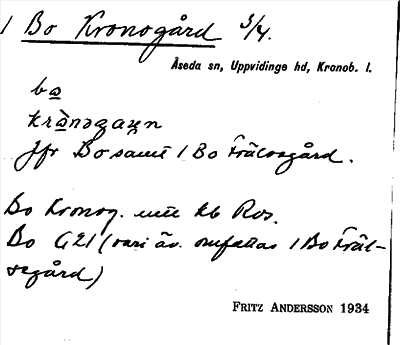 1 Bo Kronogård 3/4.
Åseda sn, Uppvidinge hd, Kronob. l.
bo̲
krònəgaɳ
Jfr Bo samt 1 Bo Frälsegård.
Bo Kronog. utt kb Ros.
Bo G21 (vari äv. omfattas 1 Bo Fräl-
segård)
FRITZ ANDERSSON 1934